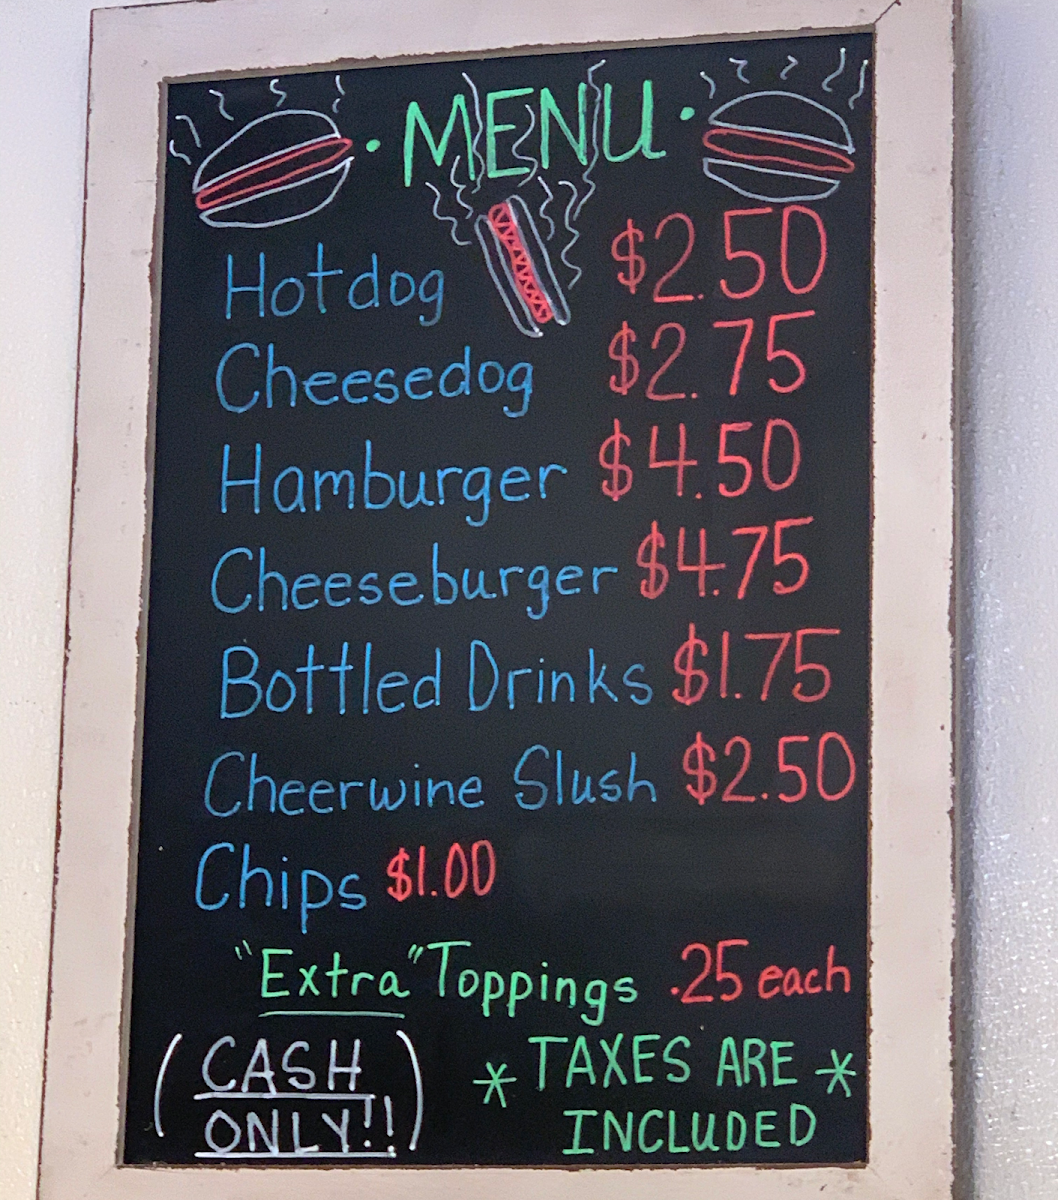 • MENU •
Hotdog $2.50
Cheesedog $2.75
Hamburger $4.50
Cheeseburger $4.75
Bottled Drinks $1.75
Cheerwine Slush $2.50
Chips $1.00
"Extra" Toppings .25 each
(CASH ONLY!!)
* TAXES ARE *
INCLUDED